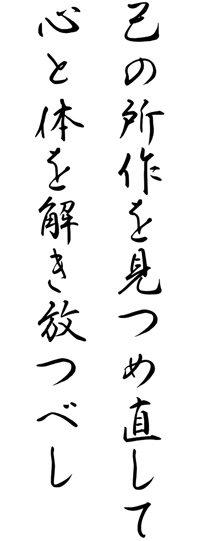 己の所作を見つめ直して
心と体を解き放つべし